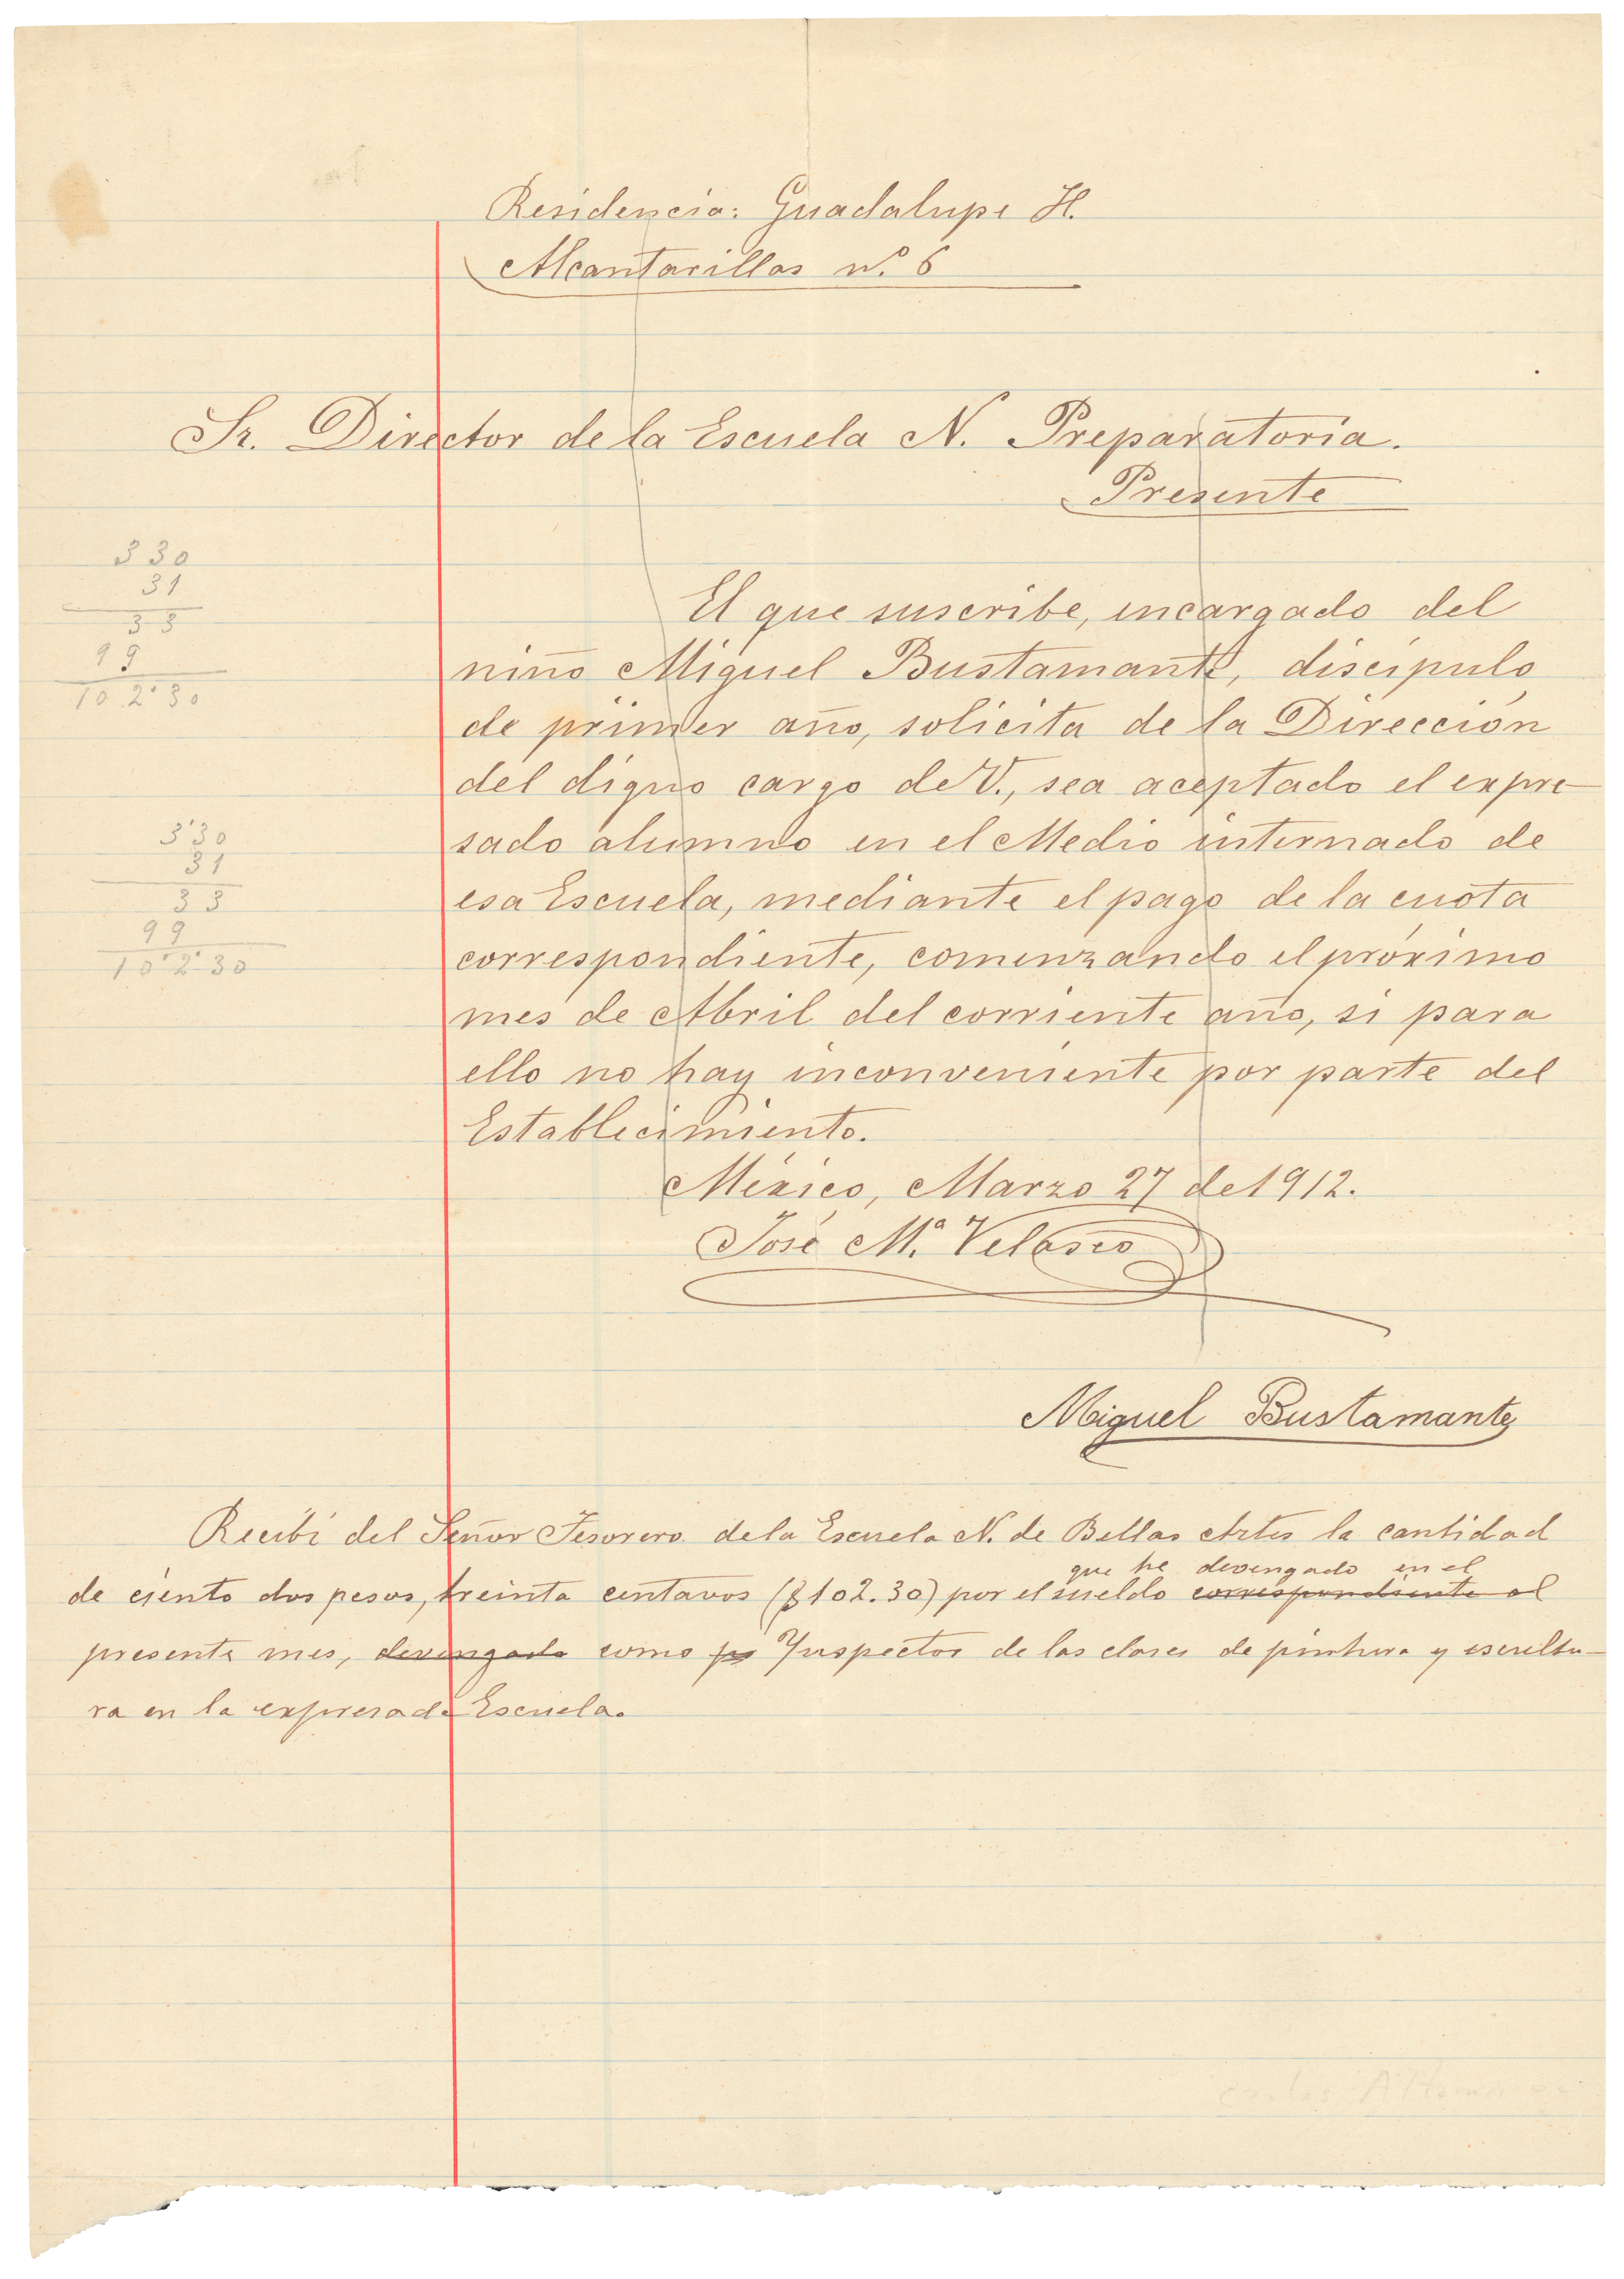 Residencia: Guadalupe H.
Alcantarillas n.º 6
Sr. Director de la Escuela N. Preparatoria.
Presente
3 30
31
33
99
10 2 30
El que suscribe, encargado del
niño Miguel Bustamante, discípulo
de primer año, solicita de la Dirección
del digno cargo de V., sea aceptado el expre
sado alumno en el Medio internado de
esa Escuela, mediante el pago de la cuota
correspondiente, comenzando el próximo
mes de Abril del corriente año, si para
ello no hay inconveniente por parte del
Establecimiento.
3 30
31
33
99
10 2 30
México, Marzo 27 de 1912.
José M.ª Velasco
Miguel Bustamante
Recibí del Señor Tesorero de la Escuela N. de Bellas Artes la cantidad
que he devengado en el
de ciento dos pesos, treinta centavos ($102.30) por el sueldo correspondiente al
presente mes, devengado como Inspector de las clases de pintura y escultu-
ra en la expresada Escuela.